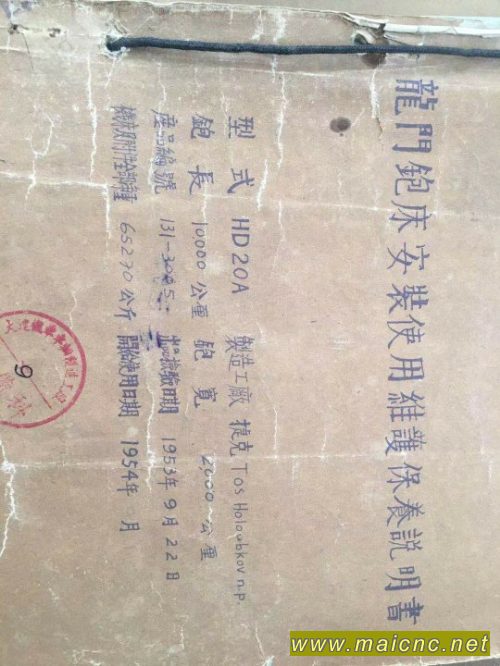 龍門鉋床安裝使用維護保養説明書
型式 HD20A 製造工廠 捷克 Tos Holoubkov n.p.
鉋長 10,000 公厘 鉋寬 2,000 公厘
產品編號 131-3005 出品檢驗日期 1953年9月22日
機床附件全部種 65270 公斤 開始使用日期 1954年 月
9
www.maicnc.net